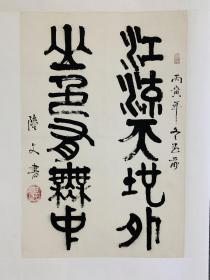 丙寅年冬至前
江流天地外
山色有無中
陸文書